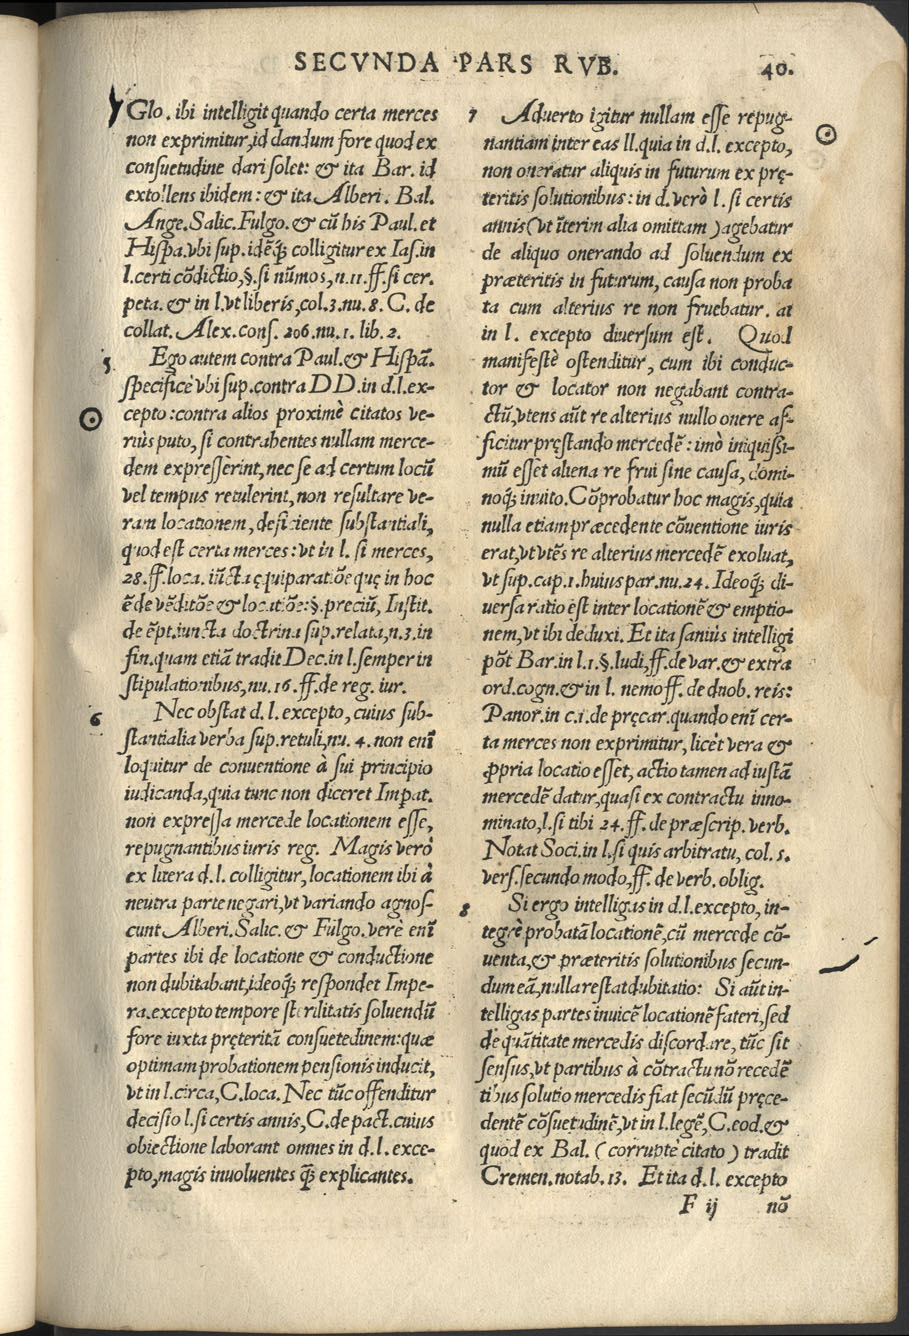 SECVNDA PARS RVB.
40.
Glo. ibi intelligit quando certa merces
non exprimitur, id dandum fore quod ex
consuetudine dari solet: & ita Bar. id
extollens ibidem: & ita Alberi. Bal.
Ange. Salic. Fulgo. & cũ his Paul. et
Hispa. vbi sup. idẽq́; colligitur ex Ias. in
l. certi cõdictio, §. si nũmos, n. 11. ff. si cer.
peta. & in l. vt liberis, col. 3. nu. 8. C. de
collat. Alex. cons. 206. nu. 1. lib. 2.
5 Ego autem contra Paul. & Hispã.
specificè vbi sup. contra DD. in d. l. ex-
cepto: contra alios proximè citatos ve-
riùs puto, si contrahentes nullam merce-
dem expresserint, nec se ad certum locũ
vel tempus retulerint, non resultare ve-
ram locationem, deficiente substantiali,
quod est certa merces: vt in l. si merces,
28. ff. loca. iũcta ęquiparatiõe quę in hoc
ẽ de vẽditõe & locatiõe: §. preciũ, Instit.
de ẽpt. iuncta doctrina sup. relata, n. 3. in
fin. quam etiã tradit Dec. in l. semper in
stipulationibus, nu. 16. ff. de reg. iur.
6 Nec obstat d. l. excepto, cuius sub-
stantialia verba sup. retuli, nu. 4. non enĩ
loquitur de conuentione à sui principio
iudicanda, quia tunc non diceret Impat.
non expressa mercede locationem esse,
repugnantibus iuris reg. Magis verò
ex litera d. l. colligitur, locationem ibi à
neutra parte negari, vt variando agnos-
cunt Alberi. Salic. & Fulgo. verè enĩ
partes ibi de locatione & conductione
non dubitabant, ideoq́; respondet Impe-
ra. excepto tempore sterilitatis soluendũ
fore iuxta pręteritã consuetedinem: quæ
optimam probationem pensionis inducit,
vt in l. circa, C. loca. Nec tũc offenditur
decisio l. si certis annis, C. de pact. cuius
obiectione laborant omnes in d. l. exce-
pto, magis inuoluentes q́; explicantes.
7 Aduerto igitur nullam esse repug-
nantiam inter eas ll. quia in d. l. excepto,
non oneratur aliquis in futurum ex prę-
teritis solutionibus: in d. verò l. si certis
annis (vt ĩterim alia omittam) agebatur
de aliquo onerando ad soluendum ex
præteritis in futurum, causa non proba
ta cum alterius re non fruebatur. at
in l. excepto diuersum est. Quod
manifestè ostenditur, cum ibi conduc-
tor & locator non negabant contra-
ctũ, vtens aũt re alterius nullo onere af-
ficitur pręstando mercedẽ: imò iniquissi-
mũ esset aliena re frui sine causa, domi-
noq́; inuito. Cõprobatur hoc magis, quia
nulla etiam præcedente cõuentione iuris
erat, vt vtẽs re alterius mercedẽ exoluat,
vt sup. cap. 1. huius par. nu. 24. Ideoq́; di-
uersa ratio est inter locationẽ & emptio-
nem, vt ibi deduxi. Et ita saniùs intelligi
põt Bar. in l. 1. §. ludi, ff. de var. & extra
ord. cogn. & in l. nemo ff. de duob. reis:
Panor. in c. 1. de pręcar. quando enĩ cer-
ta merces non exprimitur, licèt vera &
ꝓpria locatio esset, actio tamen ad iustã
mercedẽ datur, quasi ex contractu inno-
minato, l. si tibi 24. ff. de præscrip. verb.
Notat Soci. in l. si quis arbitratu, col. 5.
vers. secundo modo, ff. de verb. oblig.
8 Si ergo intelligas in d. l. excepto, in-
tegrè probatã locationẽ, cũ mercede cõ-
uenta, & præteritis solutionibus secun-
dum eã, nulla restat dubitatio: Si aũt in-
telligas partes inuicẽ locationẽ fateri, sed
de quãtitate mercedis discordare, tũc sit
sensus, vt partibus à cõtractu nõ recedẽ
tibus solutio mercedis fiat secũdũ pręce-
dentẽ cõsuetudinẽ, vt in l. legẽ, C. eod. &
quod ex Bal. (corruptè citato) tradit
Cremen. notab. 13. Et ita d. l. excepto
F ij nõ